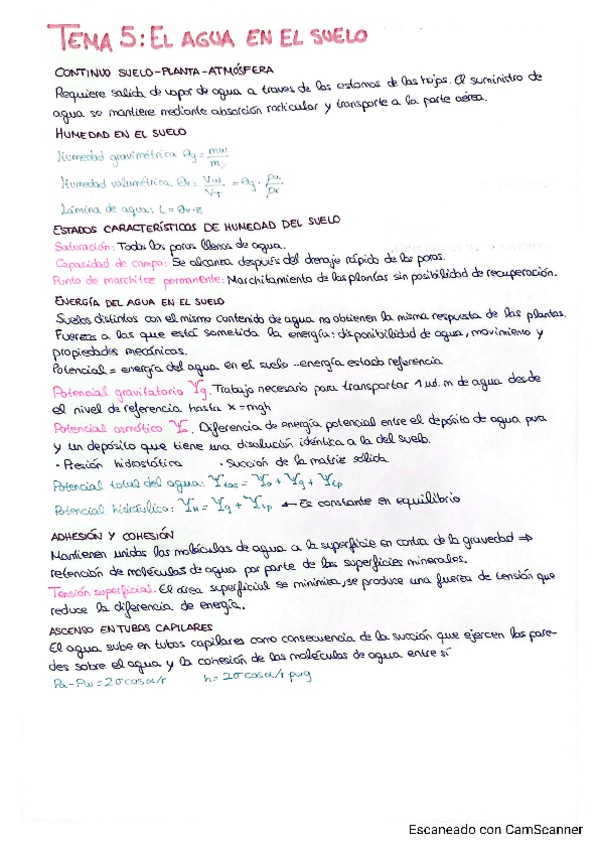 TEMA 5: EL AGUA EN EL SUELO
CONTINUO SUELO-PLANTA-ATMÓSFERA
Requiere salida de vapor de agua a traves de los estomas de las hojas. El suministro de
agua se mantiene mediante absorción radicular y transporte a la parte aérea.
HUMEDAD EN EL SUELO
Humedad gravimétrica θg = mw/m
Humedad volumétrica θv = Vw/VT = θg · ρa/ρr
Lámina de agua: L = θv·z
ESTADOS CARACTERÍSTICOS DE HUMEDAD DEL SUELO
Saturación: Todos los poros llenos de agua.
Capacidad de campo: Se alcanza después del drenaje rápido de los poros.
Punto de marchitez permanente: Marchitamiento de las plantas sin posibilidad de recuperación.
ENERGÍA DEL AGUA EN EL SUELO
Suelos distintos con el mismo contenido de agua no obtienen la misma respuesta de las plantas.
Fuerzas a las que está sometida la energía: disponibilidad de agua, movimiento y
propiedades mecánicas.
Potencial = energía del agua en el suelo - energía estado referencia
Potencial gravitatorio Ψg. Trabajo necesario para transportar 1 ud. m de agua desde
el nivel de referencia hasta x = mgh
Potencial osmótico Ψo. Diferencia de energía potencial entre el depósito de agua pura
y un depósito que tiene una disolución idéntica a la del suelo.
· Presión hidrostática · Succión de la matriz sólida
Potencial total del agua: Ψtot = Ψo + Ψg + Ψtp
Potencial hidráulico: ΨH = Ψg + Ψtp ← Es constante en equilibrio
ADHESIÓN Y COHESIÓN
Mantienen unidas las moléculas de agua a la superficie en contra de la gravedad ⇒
retención de moléculas de agua por parte de las superficies minerales.
Tensión superficial. El área superficial se minimiza, se produce una fuerza de tensión que
reduce la diferencia de energía.
ASCENSO EN TUBOS CAPILARES
El agua sube en tubos capilares como consecuencia de la succión que ejercen las pare-
des sobre el agua y la cohesión de las moléculas de agua entre sí
Pa - Pw = 2σcosα/r h = 2σcosα/r ρwg
Escaneado con CamScanner